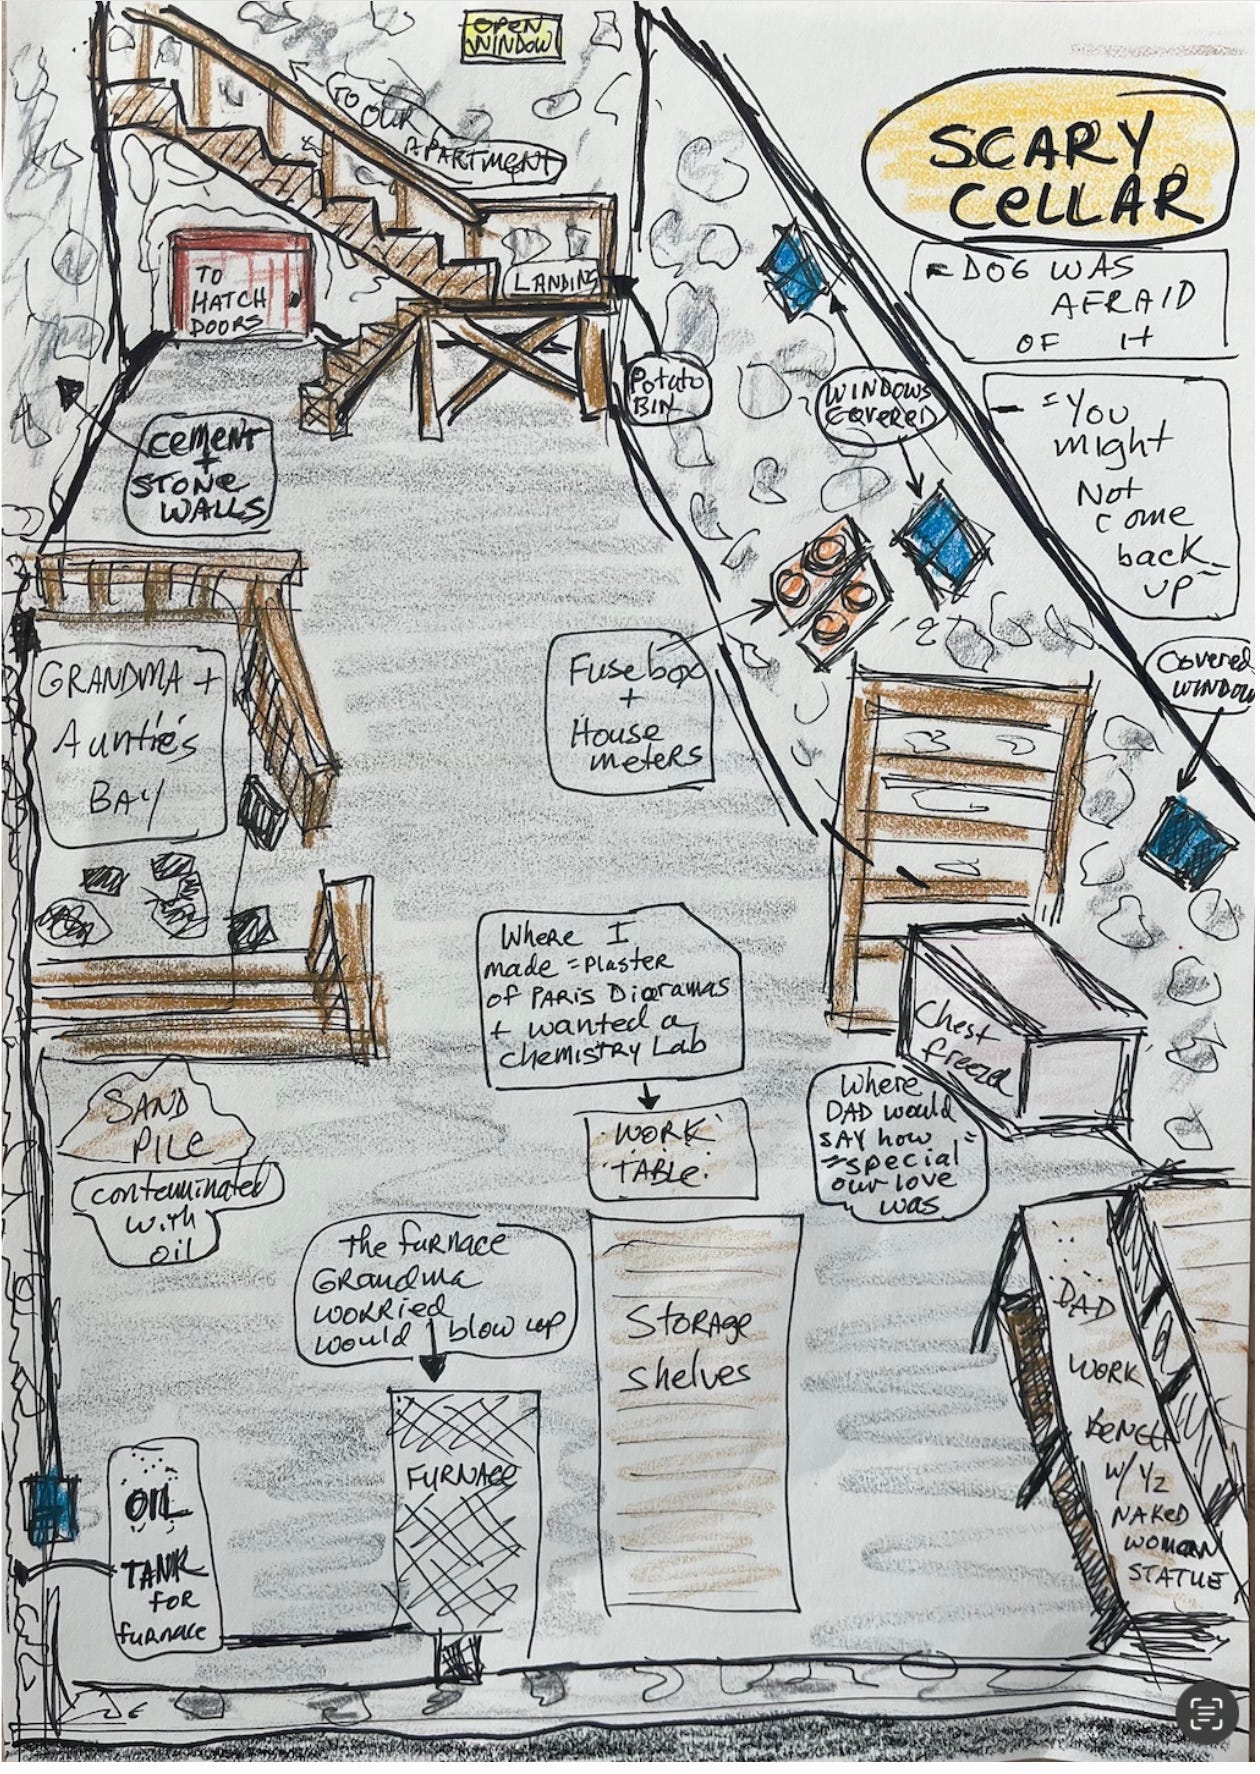 OPEN
WINDOW
TO OUR
APARTMENT
SCARY
CELLAR
- DOG WAS
AFRAID
OF IT
LANDING
TO
HATCH
DOORS
Potato
BIN
WINDOWS
COVERED
- "You
might
Not
come
back
up"
CEMENT
+
STONE
WALLS
Covered
WINDOW
Fuse box
+
House
meters
GRANDMA +
Auntie's
BAY
Where I
made = Plaster
of PARIS Dioramas
+ wanted a
chemistry Lab
Chest
freezer
Where
DAD would
SAY how
"special"
our love
was
WORK
TABLE
SAND
PILE
contaminated
with
oil
the furnace
Grandma
worried
would blow up
Storage
shelves
DAD
WORK
BENCH
W/ 1/2
NAKED
WOMAN
STATUE
FURNACE
OIL
TANK
FOR
furnace